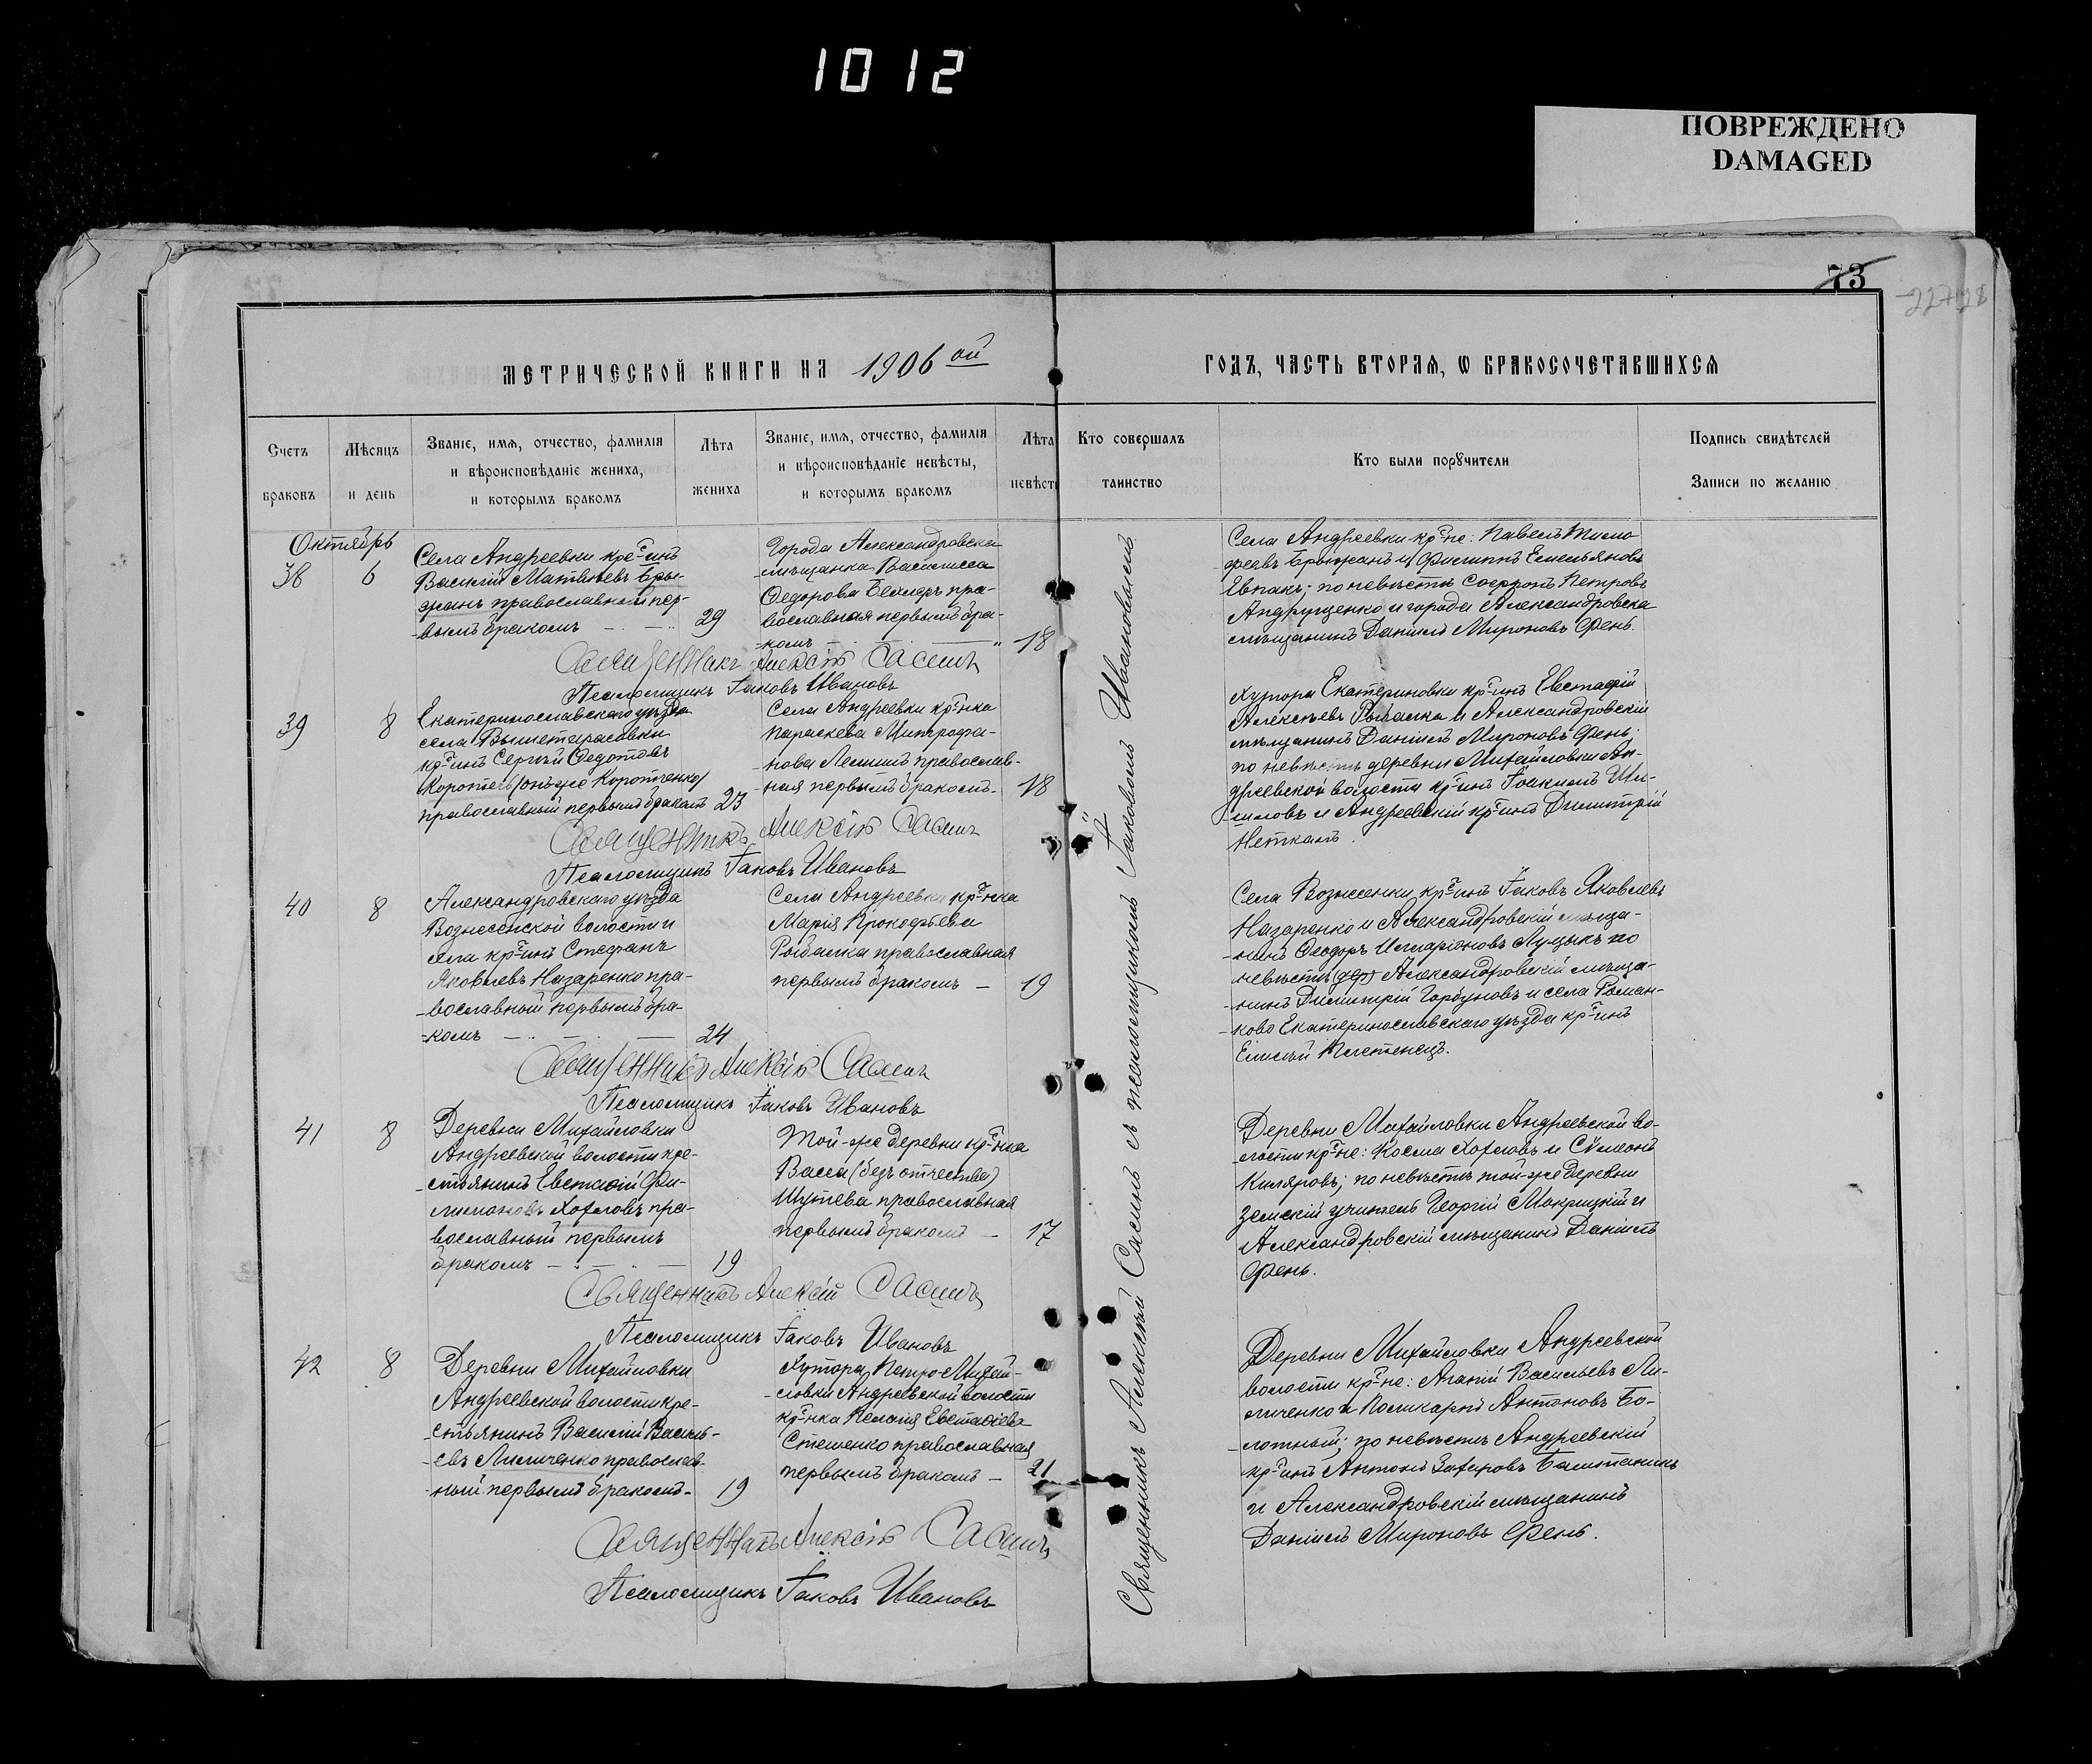 1012
ПОВРЕЖДЕНО
DAMAGED
73
МЕТРИЧЕСКОЙ КНИГИ НА 1906ой
ГОДЪ, ЧАСТЬ ВТОРАЯ, Ѡ БРАКОСОЧЕТАВШИХСЯ
Счетъ браковъ
Мѣсяцъ и день
Званіе, имя, отчество, фамилія
и вѣроисповѣданіе жениха,
и которымъ бракомъ
Лѣта жениха
Званіе, имя, отчество, фамилія
и вѣроисповѣданіе невѣсты,
и которымъ бракомъ
Лѣта невѣст
Кто совершалъ таинство
Кто были порꙋчители
Подпись свидѣтелей
Записи по желанію
Октябрь
38
6
Села Андреевки крест-инъ
Василій Матвѣевъ Бры-
жанъ православный пер-
вымъ бракомъ
29
Города Александровска
мѣщанка Василисса
Ѳедорова пра-
вославная первымъ бра-
комъ
18
Села Андреевки кр-не: Павелъ Тимо
феевъ Брыжанъ и Филиппъ Емельяновъ
Евпакъ; по невѣстѣ Софронъ Петровъ
Андрущенко и города Александровска
мѣщанинъ Даніилъ Мироновъ Фень.
Священникъ Алексій Сасинъ
Псаломщикъ Іаковъ Ивановъ
39
8
Екатеринославскаго уѣзда
села Вышетарасовки
кр-инъ Сергѣй Ѳедотовъ
Коротей (онъ-же Коротченко)
православный первымъ бракомъ
23
Села Андреевки кр-нка
Параскева Митрофа-
нова Лешишъ православ-
ная первымъ бракомъ
18
Хутора Екатериновки кр-инъ Евстафій
Алексѣевъ Рыбалка и Александровскій
мѣщанинъ Даніилъ Мироновъ Фень;
по невѣстѣ деревни Михайловки Ан-
дреевской волости кр-инъ Іоакимъ Ши-
шловъ и Андреевскій кр-инъ Димитрій
Неткалъ.
Священникъ Алексій Сасинъ
Псаломщикъ Іаковъ Ивановъ
40
8
Александровскаго уѣзда
Вознесенской волости и
села кр-инъ Стефанъ
Яковлевъ Назаренко пра-
вославный первымъ бра-
комъ
24
Села Андреевки кр-нка
Марія Прокофьева
Рыбалка православная
первымъ бракомъ
19
Села Вознесенки кр-инъ Іаковъ Яковлевъ
Назаренко и Александровскій мѣща-
нинъ Ѳеодоръ Илларіоновъ Луцыкъ по
невѣстѣ Александровскій мѣща-
нинъ Димитрій Горбуновъ и села Роман-
ково Екатеринославскаго уѣзда кр-инъ
Елисей Плетенецъ.
Священникъ Алексій Сасинъ
Псаломщикъ Іаковъ Ивановъ
41
8
Деревни Михайловки
Андреевской волости кре-
стьянинъ Евстафій Фи-
лимоновъ Хохловъ пра-
вославный первымъ
бракомъ
19
Той-же деревни кр-нка
Васса (безъ отчества)
Шутева православная
первымъ бракомъ
17
Деревни Михайловки Андреевской во-
лости кр-не: Косма Хохловъ и Сѵмеонъ
Киляровъ; по невѣстѣ той-же деревни
земскій учитель Георгій Макрицкій и
Александровскій мѣщанинъ Даніилъ
Фень.
Священникъ Алексій Сасинъ
Псаломщикъ Іаковъ Ивановъ
42
8
Деревни Михайловки
Андреевской волости кре-
стьянинъ Василій Василь-
евъ Лиличенко православ-
ный первымъ бракомъ
19
Хутора Петро-Михай-
ловки Андреевской волости
кр-нка Пелагія Евстафіева
Стешенко православная
первымъ бракомъ
21
Деревни Михайловки Андреевской
волости кр-не: Агапій Васильевъ Ли-
личенко и Поликарпъ Антоновъ Бо-
лотный; по невѣстѣ Андреевскій
кр-инъ Антонъ Захаровъ Баштаникъ
и Александровскій мѣщанинъ
Даніилъ Мироновъ Фень.
Священникъ Алексій Сасинъ
Псаломщикъ Іаковъ Ивановъ
Священникъ Алексѣй Сасинъ съ псаломщикомъ Іаковомъ Ивановымъ